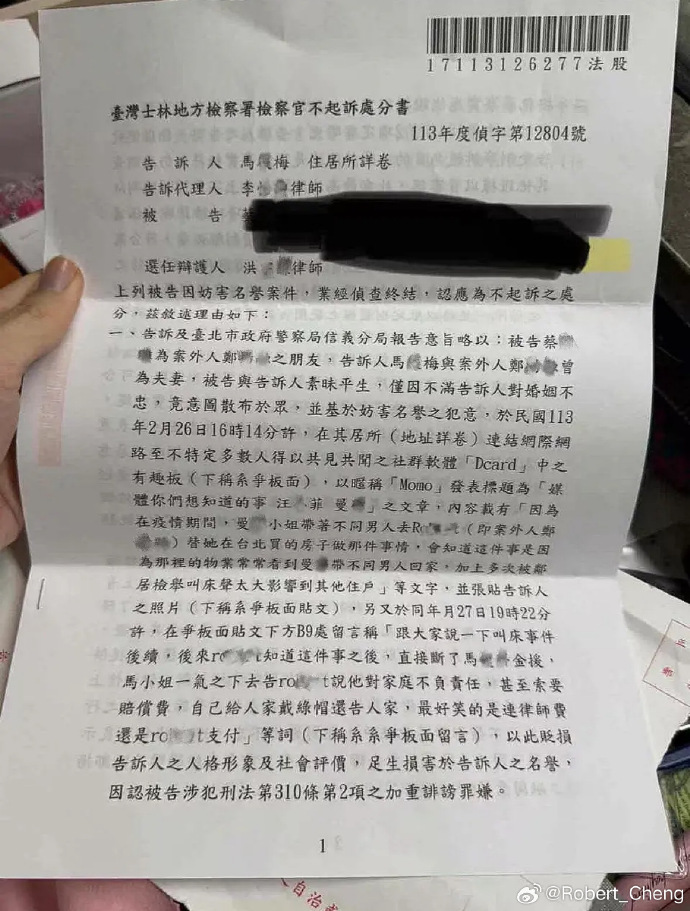 17113126277法股
臺灣士林地方檢察署檢察官不起訴處分書
113年度偵字第12804號
告訴人 馬 梅 住居所詳卷
告訴代理人 李 律師
被告 蔡
選任辯護人 洪 律師
上列被告因妨害名譽案件，業經偵查終結，認應為不起訴之處
分，茲敘述理由如下：
一、告訴及臺北市政府警察局信義分局報告意旨略以：被告蔡
為案外人鄭 之朋友，告訴人馬 梅與案外人鄭 曾
為夫妻，被告與告訴人素昧平生，僅因不滿告訴人對婚姻不
忠，竟意圖散布於眾，並基於妨害名譽之犯意，於民國113
年2月26日16時14分許，在其居所（地址詳卷）連結網際網
路至不特定多數人得以共見共聞之社群軟體「Dcard」中之
有趣板（下稱系爭板面），以暱稱「Momo」發表標題為「媒
體你們想知道的事 汪 菲 曼 」之文章，內容載有「因為
在疫情期間，曼 小姐帶著不同男人去Ro （即案外人鄭
）替她在台北買的房子做那件事情，會知道這件事是因
為那裡的物業常常看到曼 帶不同男人回家，加上多次被鄰
居檢舉叫床聲太大影響到其他住戶」等文字，並張貼告訴人
之照片（下稱系爭板面貼文），另又於同年月27日19時22分
許，在爭板面貼文下方B9處留言稱「跟大家說一下叫床事件
後續，後來ro t知道這件事之後，直接斷了馬 金援，
馬小姐一氣之下去告ro t說他對家庭不負責任，甚至索要
賠償費，自己給人家戴綠帽還告人家，最好笑的是連律師費
還是ro t支付」等詞（下稱系系爭板面留言），以此貶損
告訴人之人格形象及社會評價，足生損害於告訴人之名譽，
因認被告涉犯刑法第310條第2項之加重誹謗罪嫌。
1
@Robert_Cheng